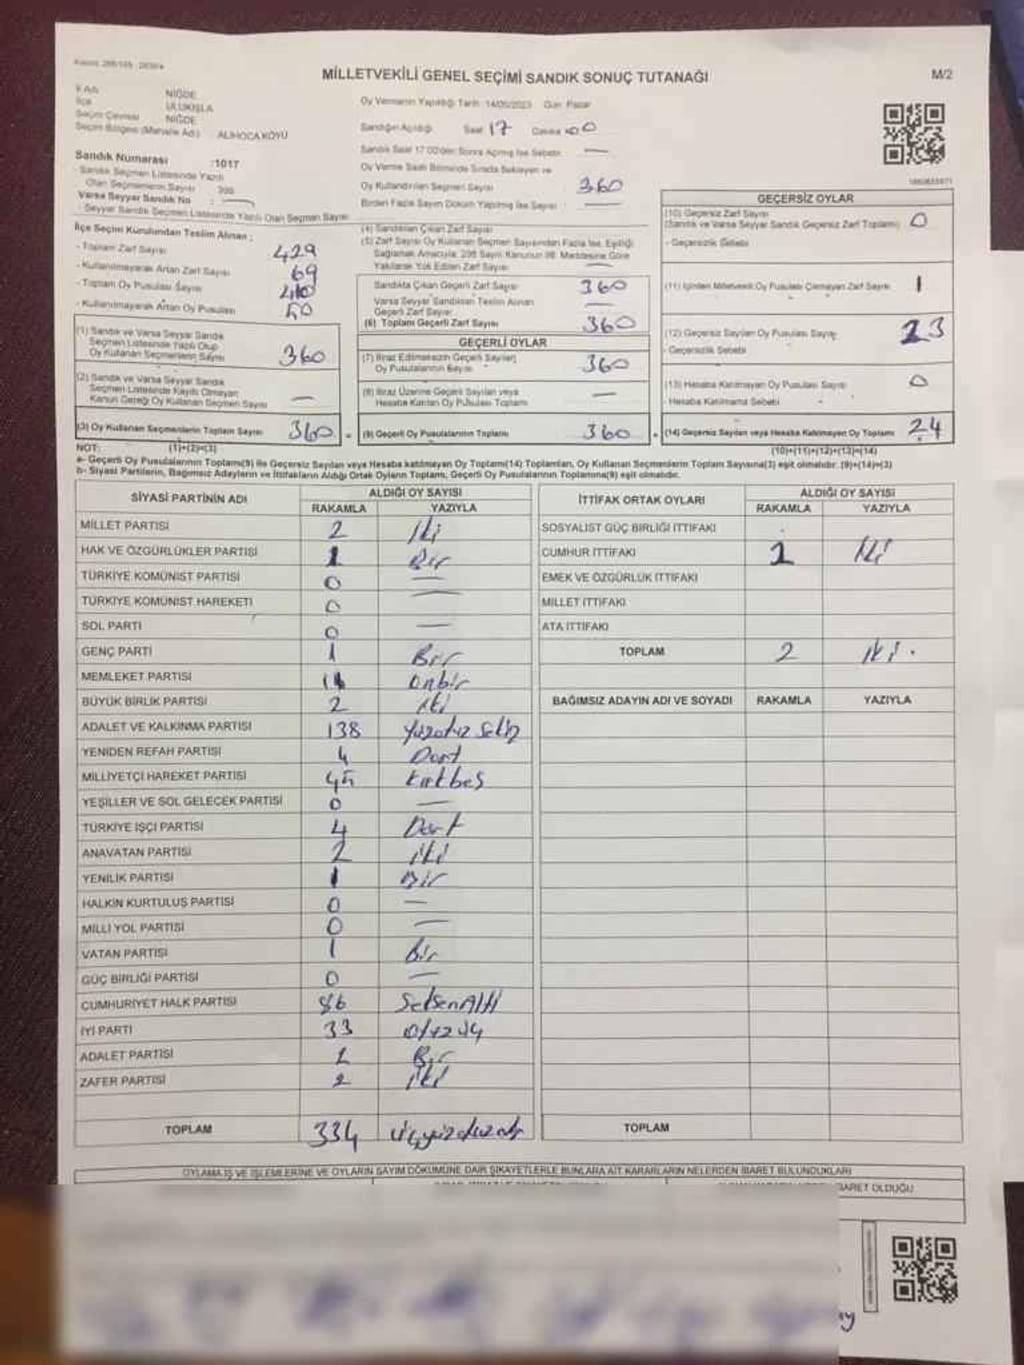 MİLLETVEKİLİ GENEL SEÇİMİ SANDIK SONUÇ TUTANAĞI
M/2
İl Adı NİĞDE
İlçe ULUKIŞLA
Seçim Çevresi NİĞDE
Seçim Bölgesi (Mahalle Adı) : ALİHOCA KÖYÜ
Oy Vermenin Yapıldığı Tarih 14/05/2023 Gün Pazar
Sandığın Açıldığı Saat 17 Dakika 00
Sandık Saat 17:00'den Sonra Açılmış İse Sebebi —
Oy Verme Saati Bitiminde Sırada Bekleyen ve
Oy Kullandırılan Seçmen Sayısı 360
Birden Fazla Sayım Döküm Yapılmış İse Sayısı —
Sandık Numarası :1017
- Sandık Seçmen Listesinde Yazılı
Olan Seçmenlerin Sayısı
Varsa Seyyar Sandık No : —
- Seyyar Sandık Seçmen Listesinde Yazılı Olan Seçmen Sayısı
İlçe Seçim Kurulundan Teslim Alınan :
- Toplam Zarf Sayısı 429
- Kullanılmayarak Artan Zarf Sayısı 69
- Toplam Oy Pusulası Sayısı
- Kullanılmayarak Artan Oy Pusulası
(1) Sandık ve Varsa Seyyar Sandık
Seçmen Listesinde Yazılı Olup
Oy Kullanan Seçmenlerin Sayısı 360
(2) Sandık ve Varsa Seyyar Sandık
Seçmen Listesinde Kayıtlı Olmayan
Kanun Gereği Oy Kullanan Seçmen Sayısı —
(3) Oy Kullanan Seçmenlerin Toplam Sayısı 360
(4) Sandıktan Çıkan Zarf Sayısı
(5) Zarf Sayısı Oy Kullanan Seçmen Sayısından Fazla İse, Eşitliği
Sağlamak Amacıyla, 298 Sayılı Kanunun 98. Maddesine Göre
Yakılarak Yok Edilen Zarf Sayısı —
Sandıkta Çıkan Geçerli Zarf Sayısı 360
Varsa Seyyar Sandıktan Teslim Alınan
Geçerli Zarf Sayısı —
(6) Toplam Geçerli Zarf Sayısı 360
GEÇERLİ OYLAR
(7) İtiraz Edilmeksizin Geçerli Sayılan
Oy Pusulalarının Sayısı 360
(8) İtiraz Üzerine Geçerli Sayılan veya
Hesaba Katılan Oy Pusulası Toplamı —
(9) Geçerli Oy Pusulalarının Toplamı 360
GEÇERSİZ OYLAR
(10) Geçersiz Zarf Sayısı
(Sandık ve Varsa Seyyar Sandık Geçersiz Zarf Toplamı) 0
- Geçersizlik Sebebi
(11) İçinden Milletvekili Oy Pusulası Çıkmayan Zarf Sayısı 1
(12) Geçersiz Sayılan Oy Pusulası Sayısı 23
- Geçersizlik Sebebi
(13) Hesaba Katılmayan Oy Pusulası Sayısı 0
- Hesaba Katılmama Sebebi
(14) Geçersiz Sayılan veya Hesaba Katılmayan Oy Toplamı 24
NOT: (1)+(2)=(3) (10)+(11)+(12)+(13)=(14)
a- Geçerli Oy Pusulalarının Toplamı(9) ile Geçersiz Sayılan veya Hesaba katılmayan Oy Toplamı(14) Toplamları, Oy Kullanan Seçmenlerin Toplam Sayısına(3) eşit olmalıdır. (9)+(14)=(3)
b- Siyasi Partilerin, Bağımsız Adayların ve İttifakların Aldığı Ortak Oyların Toplamı, Geçerli Oy Pusulalarının Toplamına(9) eşit olmalıdır.
SİYASİ PARTİNİN ADI ALDIĞI OY SAYISI
RAKAMLA YAZIYLA
MİLLET PARTİSİ 2 iki
HAK VE ÖZGÜRLÜKLER PARTİSİ 1 Bir
TÜRKİYE KOMÜNİST PARTİSİ 0 —
TÜRKİYE KOMÜNİST HAREKETİ 0 —
SOL PARTİ 0 —
GENÇ PARTİ 1 Bir
MEMLEKET PARTİSİ 11 onbir
BÜYÜK BİRLİK PARTİSİ 2 iki
ADALET VE KALKINMA PARTİSİ 138
YENİDEN REFAH PARTİSİ 4 Dört
MİLLİYETÇİ HAREKET PARTİSİ 45 kırkbeş
YEŞİLLER VE SOL GELECEK PARTİSİ 0 —
TÜRKİYE İŞÇİ PARTİSİ 4 Dört
ANAVATAN PARTİSİ 2 iki
YENİLİK PARTİSİ 1 Bir
HALKIN KURTULUŞ PARTİSİ 0 —
MİLLİ YOL PARTİSİ 0 —
VATAN PARTİSİ 1 Bir
GÜÇ BİRLİĞİ PARTİSİ 0 —
CUMHURİYET HALK PARTİSİ 86 SeksenAltı
İYİ PARTİ 33
ADALET PARTİSİ 1 Bir
ZAFER PARTİSİ 2 iki
TOPLAM 334
İTTİFAK ORTAK OYLARI ALDIĞI OY SAYISI
RAKAMLA YAZIYLA
SOSYALİST GÜÇ BİRLİĞİ İTTİFAKI
CUMHUR İTTİFAKI iki
EMEK VE ÖZGÜRLÜK İTTİFAKI
MİLLET İTTİFAKI
ATA İTTİFAKI
TOPLAM 2 iki.
BAĞIMSIZ ADAYIN ADI VE SOYADI RAKAMLA YAZIYLA
TOPLAM
OYLAMA İŞ VE İŞLEMLERİNE VE OYLARIN SAYIM DÖKÜMÜNE DAİR ŞİKAYETLERLE BUNLARA AİT KARARLARIN NELERDEN İBARET BULUNDUKLARI